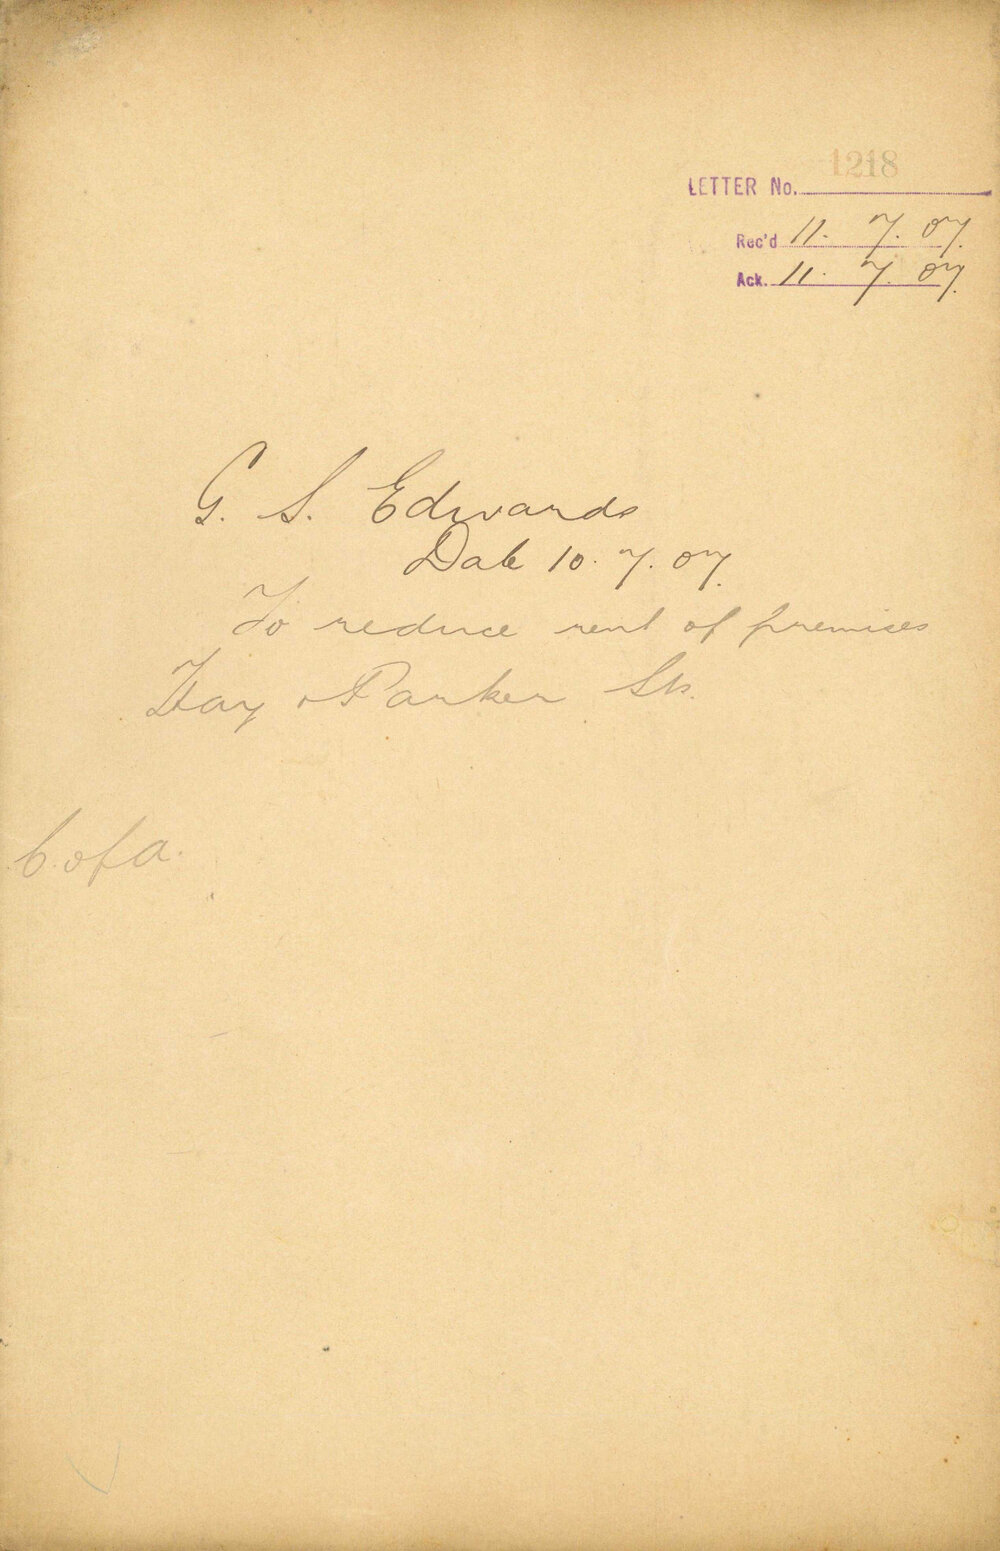 1218
LETTER No.
Rec'd 11. 7. 07.
Ack. 11. 7. 07.
G. S. Edwards
Date 10. 7. 07.
To reduce rent of premises
Hay & Parker Sts.
C. of A.